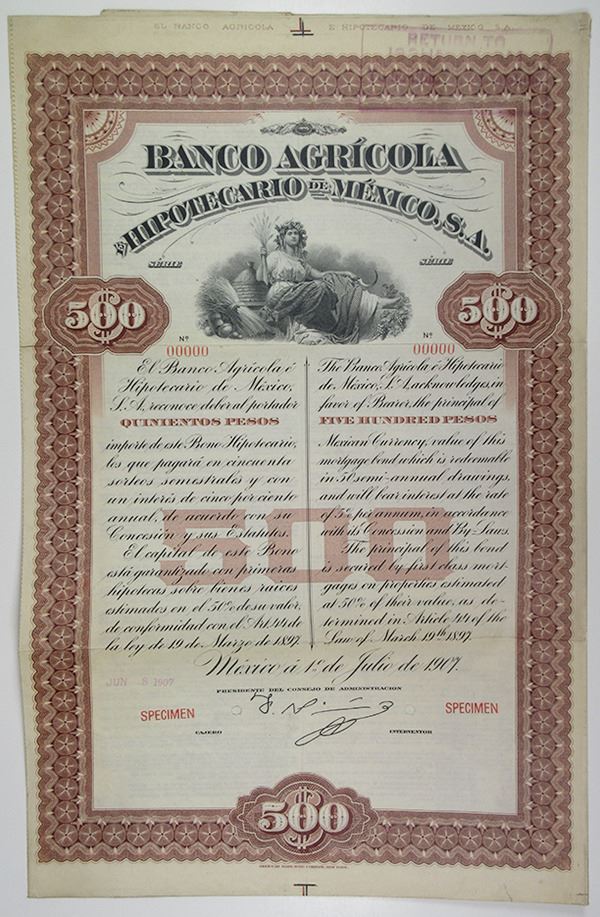 EL BANCO AGRICOLA E HIPOTECARIO DE MEXICO S.A.
RETURN TO
BANCO AGRÍCOLA
É HIPOTECARIO DE MÉXICO, S.A.
SÉRIE
SÉRIE
500
500
Nº
00000
Nº
00000
El Banco Agrícola é
Hipotecario de México,
S.A., reconoce deber al portador
QUINIENTOS PESOS
importe de este Bono Hipotecario,
los que pagará en cincuenta
sorteos semestrales y con
un interés de cinco por ciento
anual, de acuerdo con su
Concesión y sus Estatutos.
El capital de este Bono
está garantizado con primeras
hipotecas sobre bienes raíces
estimados en el 50% de su valor,
de conformidad con el Art. 44 de
la ley de 19 de Marzo de 1897.
The Banco Agrícola é Hipotecario
de México, S.A. acknowledges, in
favor of Bearer, the principal of
FIVE HUNDRED PESOS
Mexican Currency, value of this
mortgage bond which is redeemable
in 50 semi-annual drawings,
and will bear interest at the rate
of 5% per annum, in accordance
with its Concession and By-Laws.
The principal of this bond
is secured by first class mort-
gages on properties estimated
at 50% of their value, as de-
termined in Article 44 of the
Law of March 19th 1897.
500
México á 1º de Julio de 1907.
JUN 8 1907
PRESIDENTE DEL CONSEJO DE ADMINISTRACION
SPECIMEN
SPECIMEN
CAJERO
INTERVENTOR
500
AMERICAN BANK NOTE COMPANY, NEW YORK.